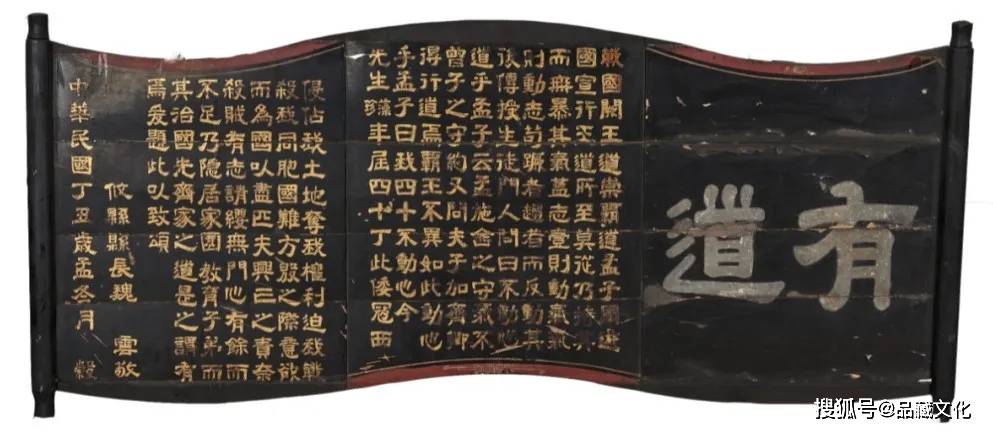 有道
戰國闕王道崇霸道孟子周遊
國宣行王道所至莫從乃持其
而無暴其氣蓋志壹則動氣氣
則動志苟蹶者趨者而反動其
後傳授生徒門人問曰不動心
道乎孟子曰孟施舍之守氣不
曾子之守約又問夫子加齊卿
得行道焉霸王不異如此動心
乎孟子曰我四十不動心今
先生藻珍年屆四十丁此倭寇西
侵佔我土地奪我權利迫我戰
殺我同胞國難方殷之際意欲
而為國以盡匹夫興亡之責奈
殺賊有志請纓無門心有餘而
不足乃隱居家園教育子弟而
其治國先齊家之道是之謂有
焉爰題此以致頌
攸縣縣長魏雲敬
中華民國丁丑歲孟冬月
搜狐号@品藏文化